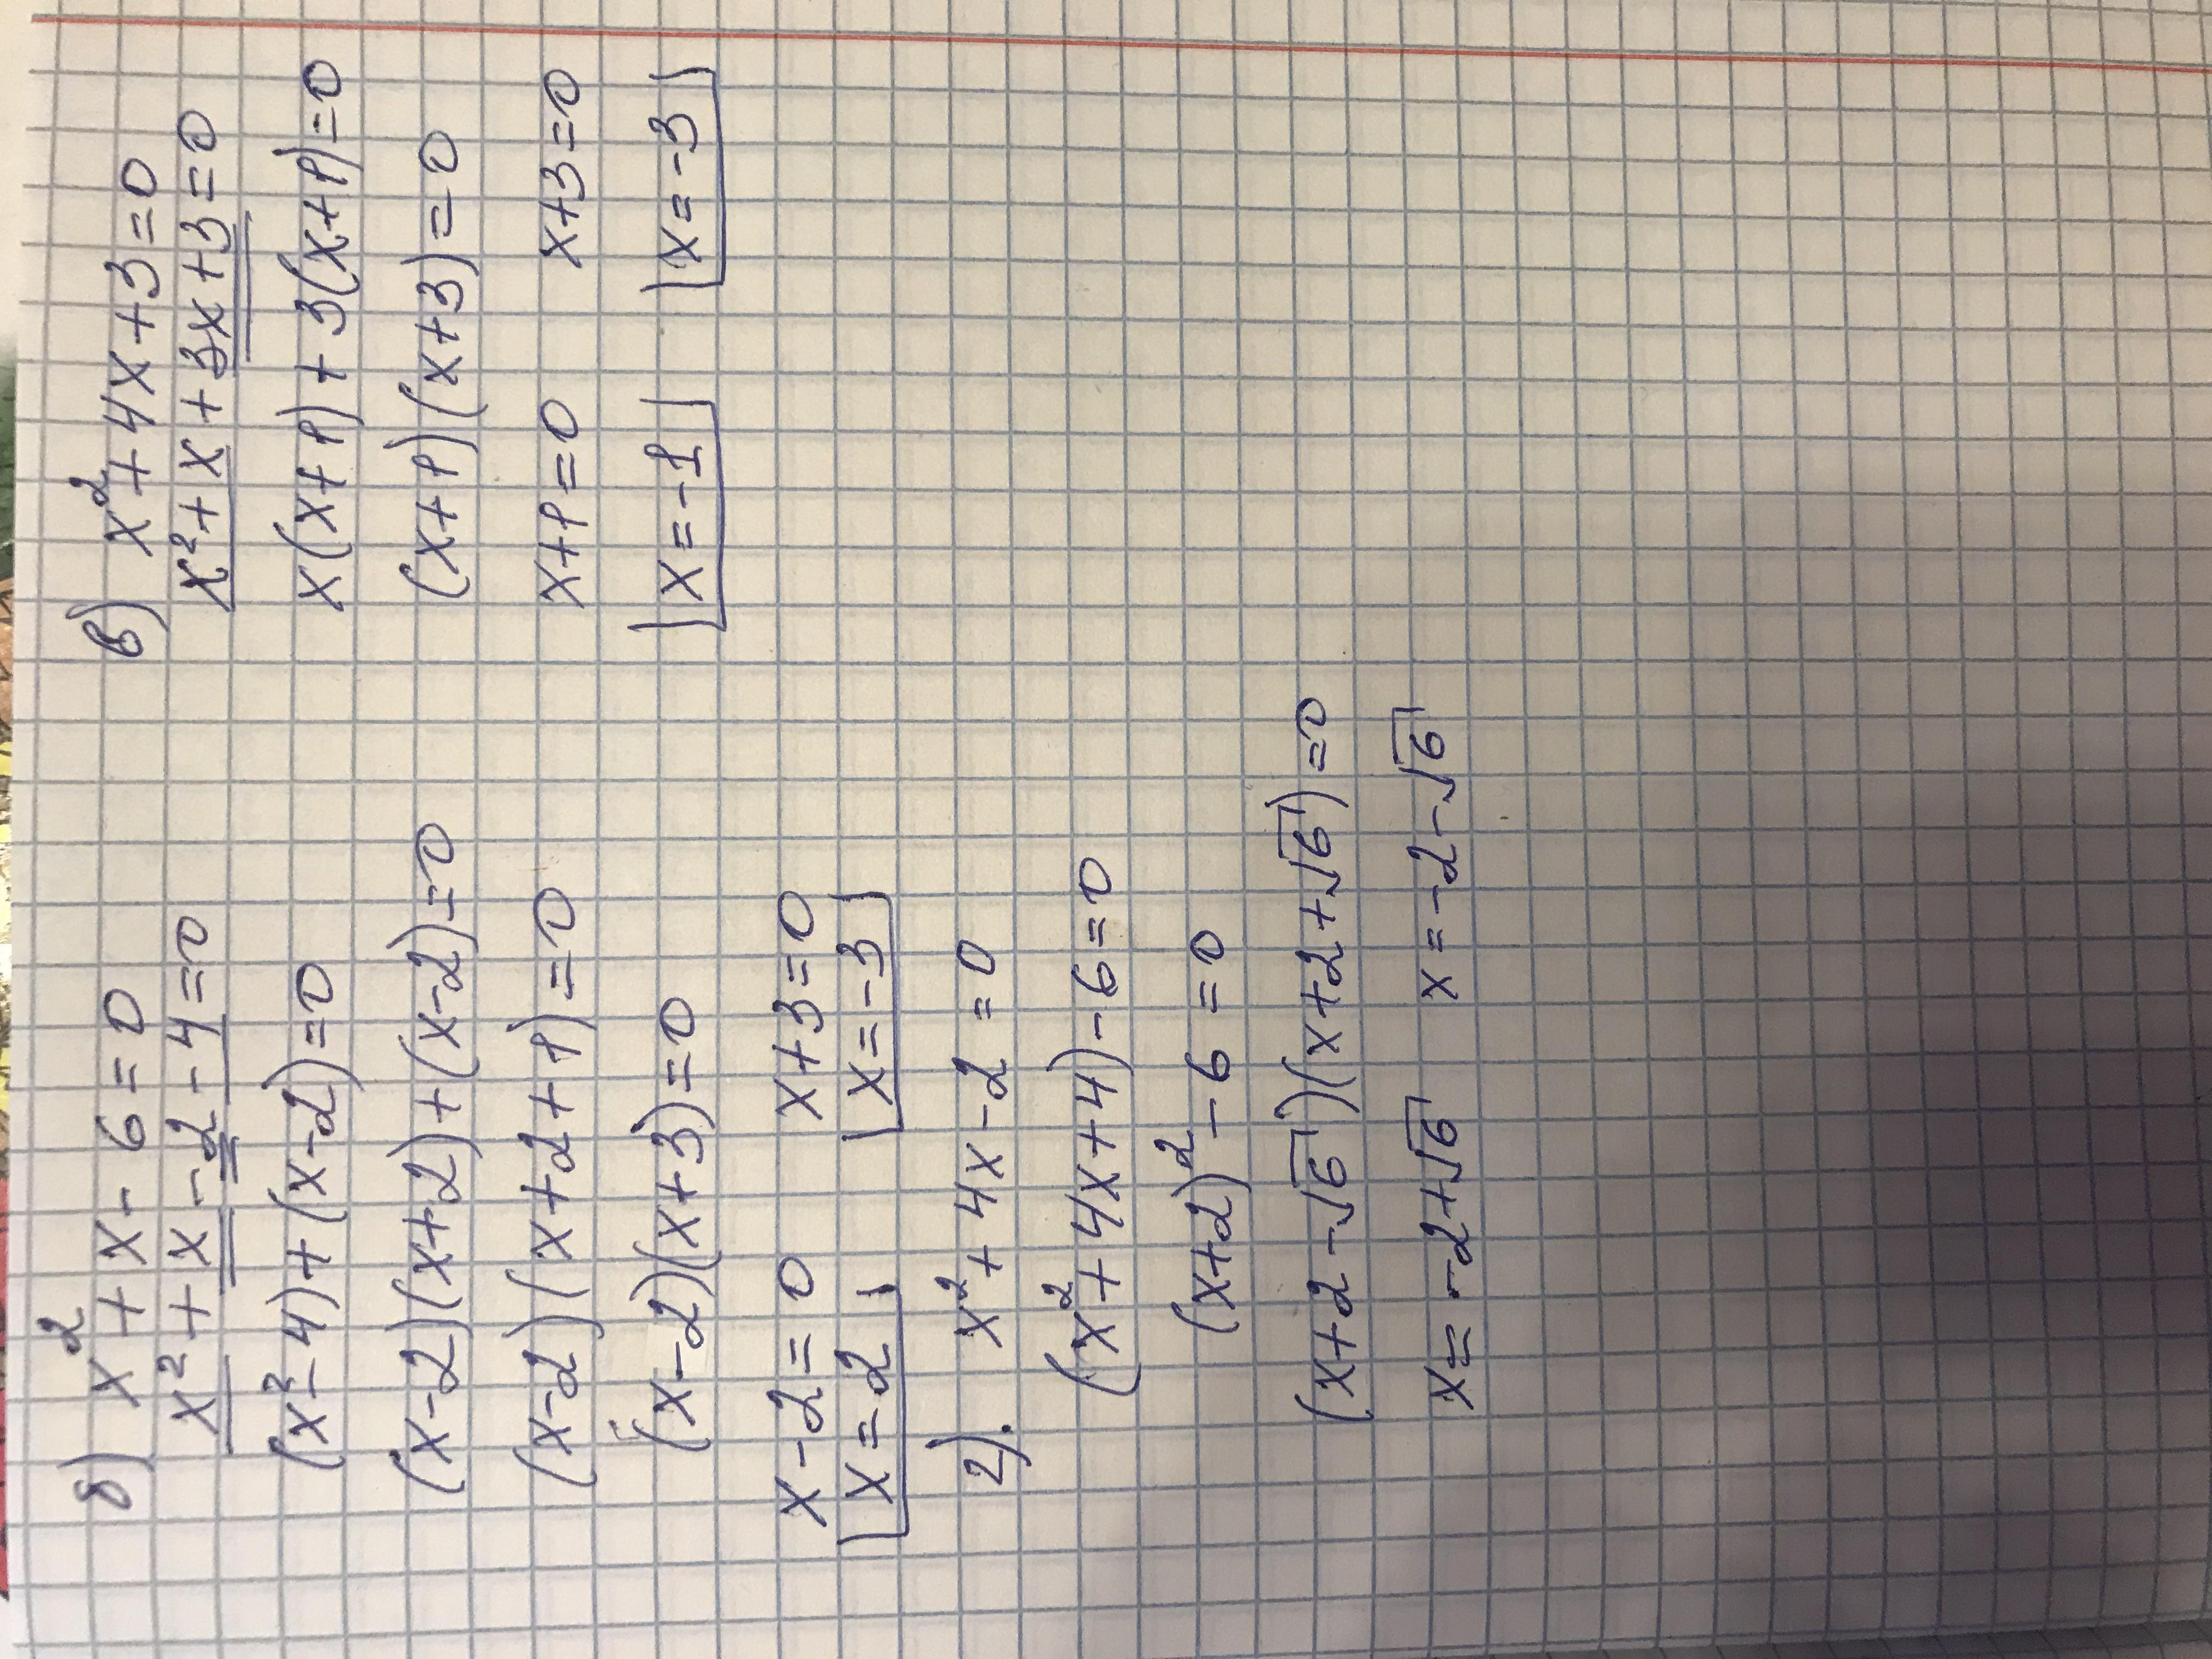 б) x² + x - 6 = 0
x² + x - 2 - 4 = 0
(x² - 4) + (x - 2) = 0
(x - 2)(x + 2) + (x - 2) = 0
(x - 2)(x + 2 + 1) = 0
(x - 2)(x + 3) = 0
x - 2 = 0 x + 3 = 0
x = 2 x = -3
в) x² + 4x + 3 = 0
x² + x + 3x + 3 = 0
x(x + 1) + 3(x + 1) = 0
(x + 1)(x + 3) = 0
x + 1 = 0 x + 3 = 0
x = -1 x = -3
2). x² + 4x - 2 = 0
(x² + 4x + 4) - 6 = 0
(x + 2)² - 6 = 0
(x + 2 - √6)(x + 2 + √6) = 0
x = -2 + √6 x = -2 - √6